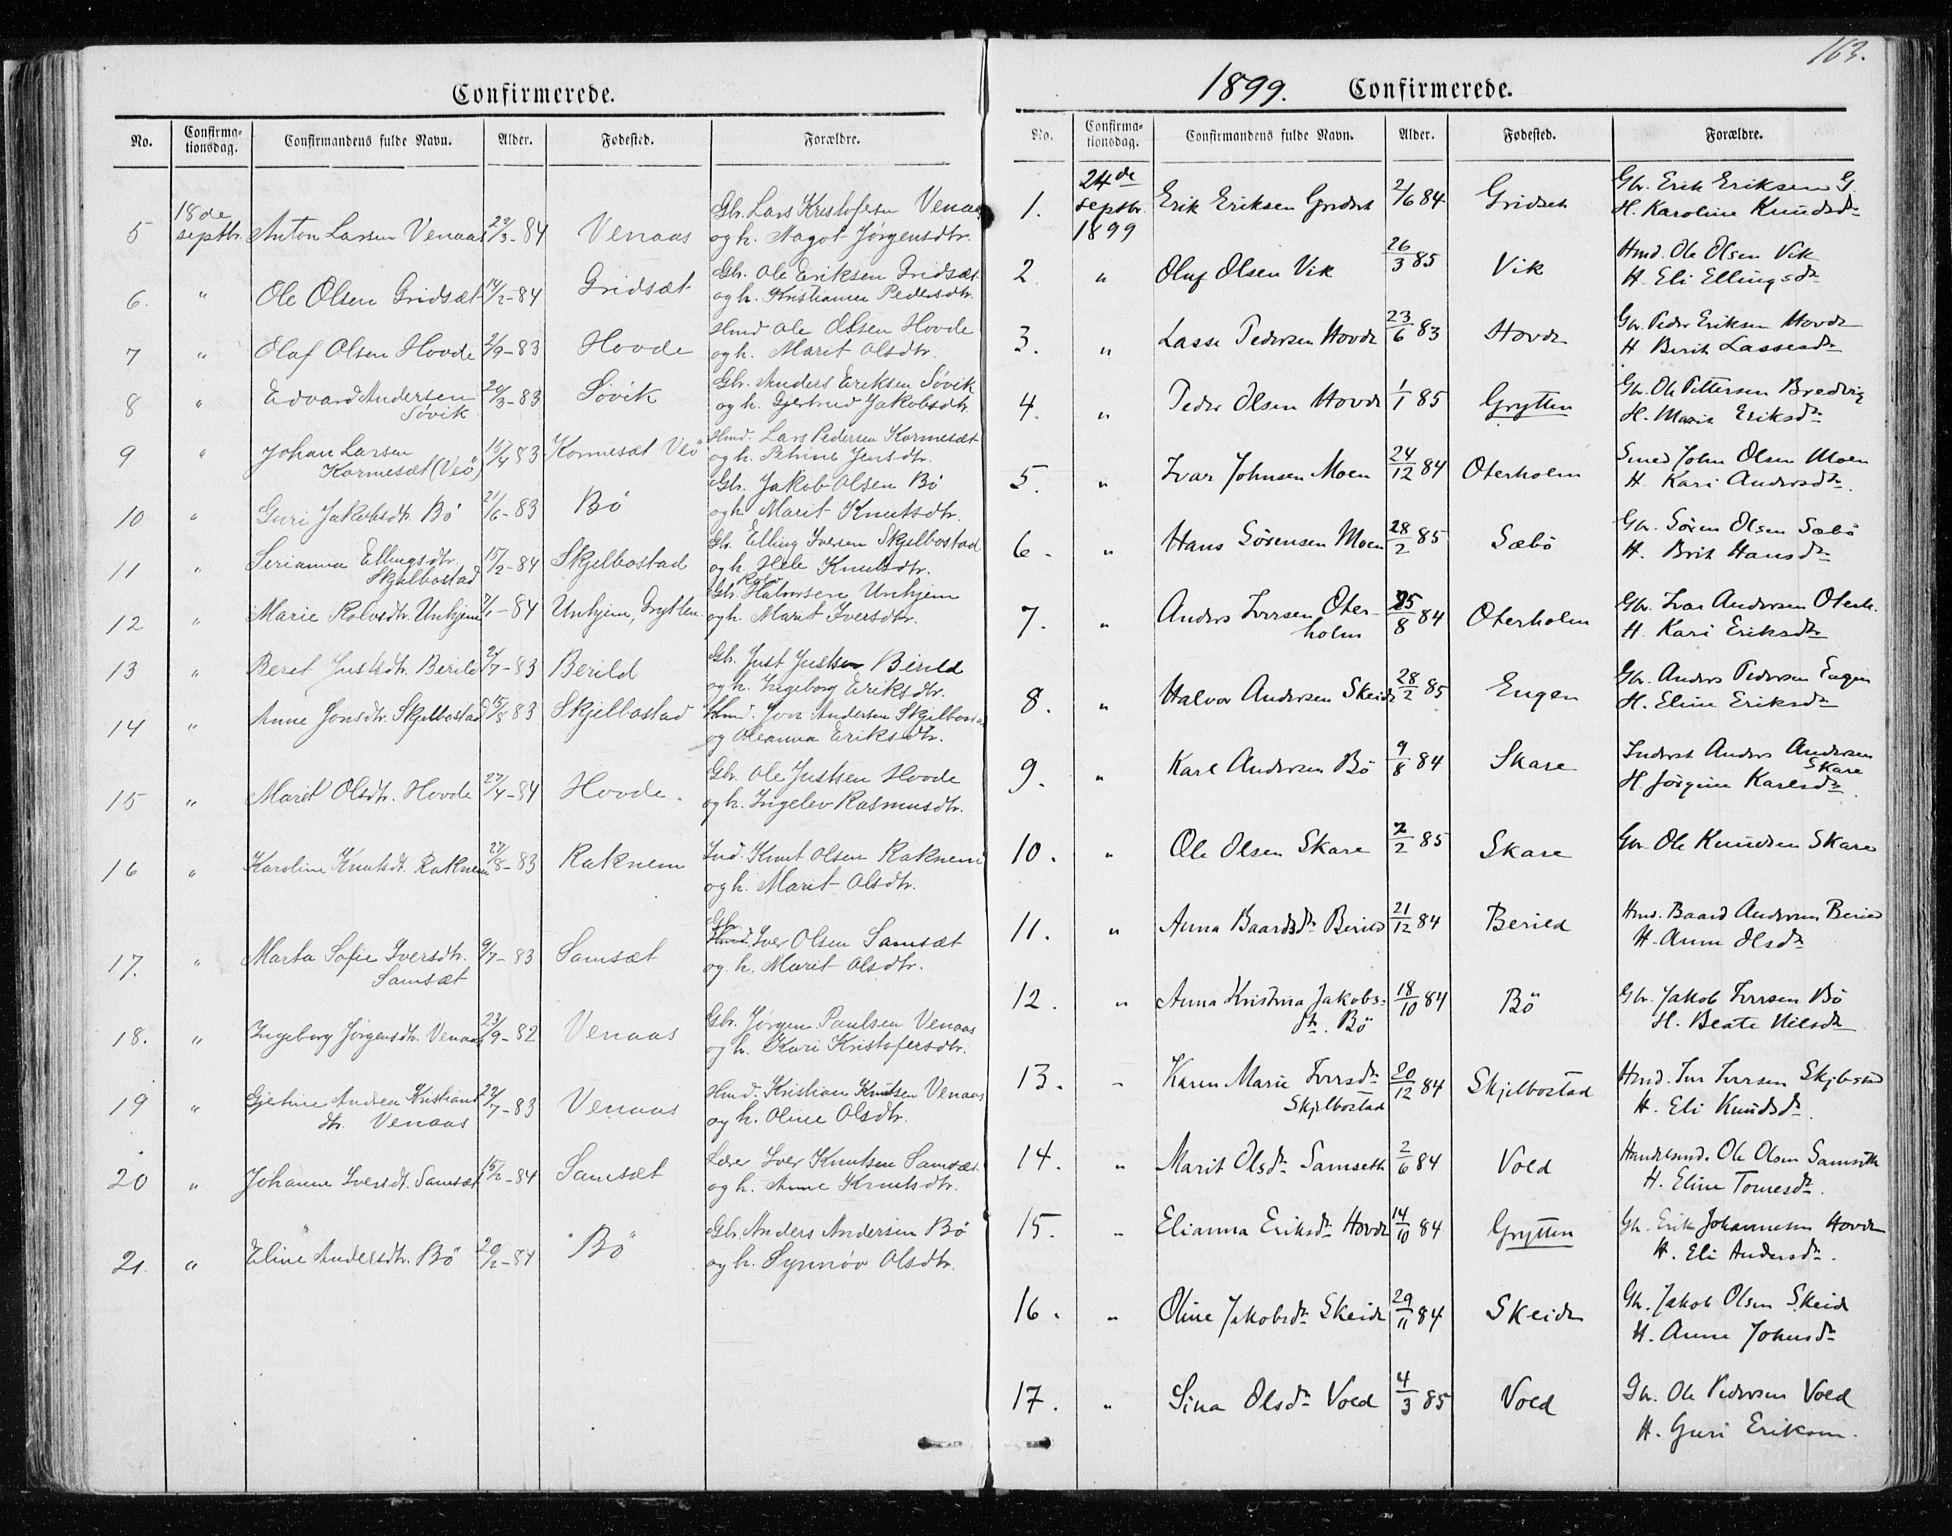 Confirmerede.
No. Confirma-tionsdag. Confirmandens fulde Navn. Alder. Fødested. Forældre.
5 18de septbr. Anton Larsen Venaas 22/3-84 Venaas Gbr. Lars Kristofersen Venaas
og h. Magot Jørgensdtr.
6. " Ole Olsen Gridsæt 14/2-84 Gridsæt Gbr. Ole Eriksen Gridsæt
og h. Kristianna Pedersdtr.
7 " Olaf Olsen Hovde 2/9-83 Hovde Hmd Ole Olsen Hovde
og h. Marit Olsdtr.
8 " Edvard Andersen Søvik 20/3-83 Søvik Gbr. Anders Eriksen Søvik
og h. Gjertrud Jakobsdtr.
9 " Johan Larsen Kormesæt (Veø) 15/4 83 Kormesæt Veö Hmd. Lars Pedersen Kormesæt
og h. Petrine Jensdtr.
10 " Guri Jakobsdtr. Bö 21/6-83 Bö Gbr. Jakob Olsen Bö
og h. Marit Knutsdtr.
11 " Serianna Ellingsdtr. Skjelbostad 15/2-84 Skjelbostad Gbr. Elling Iversen Skjelbostad
og h. Knutsdtr.
12 " Marie Rolvsdtr. Unhjem 7/1-84 Unhjem, Grytten Gbr. Rolv Halvorsen Unhjem
og h. Marit Iversdtr.
13 " Beret Justsdtr. Berild 2/7-83 Berild Gbr. Just Justsen Berild
og h. Ingeborg Eriksdtr.
14 " Anne Jonsdtr. Skjelbostad 15/8 83 Skjelbostad Hmd. Jon Andersen Skjelbostad
og Oleanna Eriksdtr.
15 " Marit Olsdtr. Hovde 27/4-84 Hovde. Gbr. Ole Justsen Hovde
og h. Ingelev Rasmusdtr.
16 " Karoline Knutsdt. Raknem 27/8-83 Raknem Ind. Knut Olsen Raknem
og h. Marit Olsdtr.
17. " Marta Sofie Iversdtr. Samsæt 9/7-83 Samsæt Gbr. Iver Olsen Samsæt
og h. Marit Olsdtr.
18. " Ingeborg Jørgensdtr. Venaas 23/9-82 Venaas Gbr. Jørgen Paulsen Venaas
og h. Kari Kristofersdtr.
19 " Gjetine Andrea Kristians dtr. Venaas 22/7-83 Venaas Hmd. Kristian Knutsen Venaas
og h. Oline Olsdtr.
20 " Johanne Iversdt. Samsæt 15/2-84 Samsæt Lærer Iver Knutsen Samsæt
og h. Anne Knutsdtr.
21. " Eline Andersdtr. Bö 20/2-84 Bö Gbr. Anders Andersen Bø
og h. Synnøv Olsdtr.
163.
1899. Confirmerede.
No. Confirma-tionsdag. Confirmandens fulde Navn. Alder. Fødested. Forældre.
1. 24de septbr. 1899 Erik Eriksen Gridset 2/6 84 Gridset Gbr. Erik Eriksen G.
H. Karoline Knudsdtr
2 " Oluf Olsen Vik 26/3 85 Vik Hmd. Ole Olsen Vik
H. Eli Ellingsdtr
3. " Lasse Pedersen Hovde 23/6 83 Hovde Gbr. Peder Eriksen Hovde
H Berit Lassesdtr
4. " Peder Olsen Hovde 1/1 85 Grytten Gbr. Ole Pettersen Bredvig
H. Marit Eriksdtr
5. " Ivar Johnsen Moen 24/12 84 Oterholm Smed John Olsen Moen
H. Kari Andersdtr.
6. " Hans Sörensen Moen 28/2 85 Sæbö Gbr. Sören Olsen Sæbö
H. Brit Hansdtr
7. " Anders Iversen Oter-holm 25/8 84 Oterholm Gbr. Ivar Andersen Oterh.
H. Kari Eriksdtr
8. " Halvor Andersen Skeide 28/2 85 Engen Gbr. Anders Pedersen Engen
H. Eline Eriksdtr
9. " Karl Andersen Bö 9/8 84 Skare Inderst Anders Andersen Skare
H. Jörgine Karlsdtr.
10. " Ole Olsen Skare 2/2 85 Skare Gbr. Ole Knudsen Skare
11. " Anna Baardsdtr Berild 21/12 84 Berild Hmd. Baard Andersen Berild
H. Anne Olsdtr
12. " Anna Kristina Jakobs-dtr. Bö 18/10 84 Bö Gbr. Jakob Iversen Bö
H. Beate Nilsdtr
13. " Karen Marie Iversdtr Skjelbostad 20/12 84 Skjelbostad Hmd. Iver Iversen Skjelbostad
H. Eli Knudsdtr.
14. " Marit Olsdtr Samseth 2/6 84 Vold Handelsmd. Ole Olsen Samseth
H. Eline Tomesdtr.
15. " Elianna Eriksdtr Hovde 14/10 84 Grytten Gbr. Erik Johannesen Hovde
H. Eli Andersdtr.
16. " Oline Jakobsdtr Skeide 29/11 84 Skeide Gbr. Jakob Olsen Skeide
H. Anne Johnsdtr
17. " Sina Olsdtr Vold 4/3 85 Vold Gbr. Ole Pedersen Vold
H. Guri Eriksen.